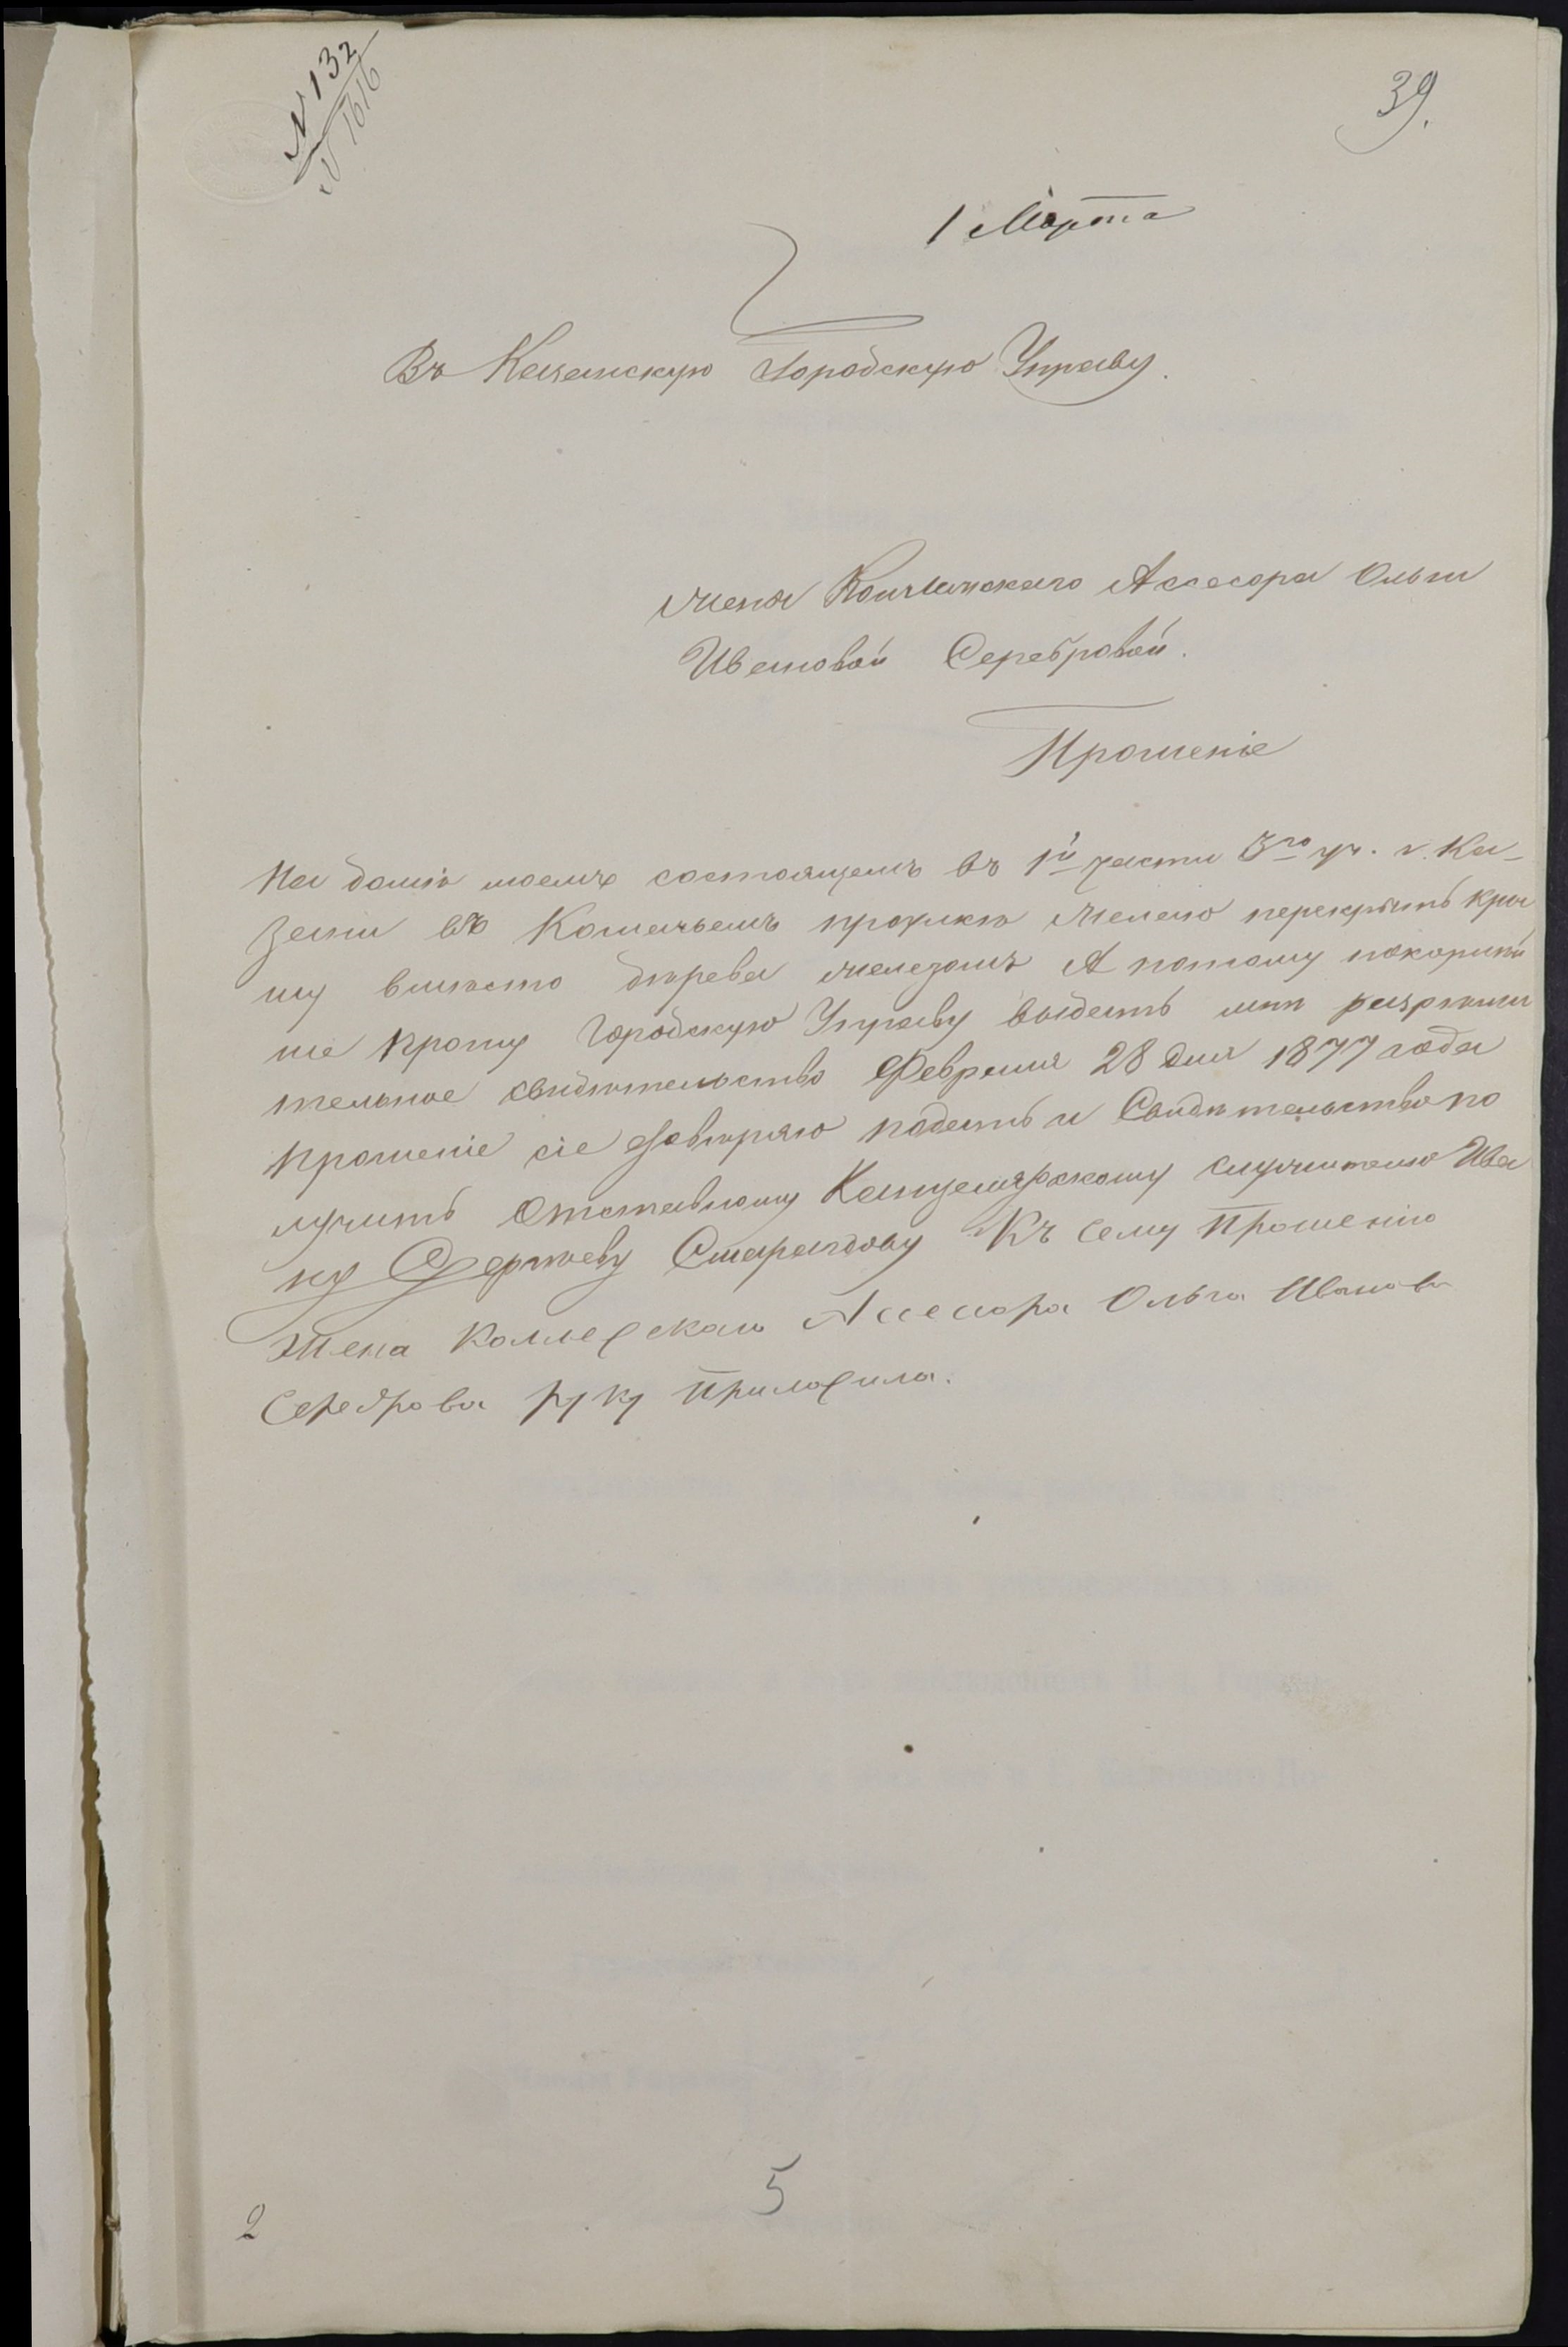 N 132
N 1616
39.
1 Марта
Въ Казанскую Городскую Управу.
Жены Коллежскаго Ассесора Ольги
Ивановой Серебровой.
Прошеніе
На домѣ моемъ состоящемъ въ 1й части 3го уч. г. Ка-
зани въ Кошачьемъ проулкѣ желаю перекрыть кры
шу вмѣсто дѣрева железомъ А потому покорнѣй
ше прошу Городскую Управу выдать мнѣ разрѣши
тельное свидѣтельство Февраля 28 дня 1877 года
прошеніе сіе довѣряю подать и Свидѣтельство по
лучить Отставному Канцелярскому служителю Ива
ну Сергѣеву Смарагдову Къ сему Прошенію
Жена Коллежскаго Ассесора Ольга Иванова
Сереброва руку Приложила.
5
2